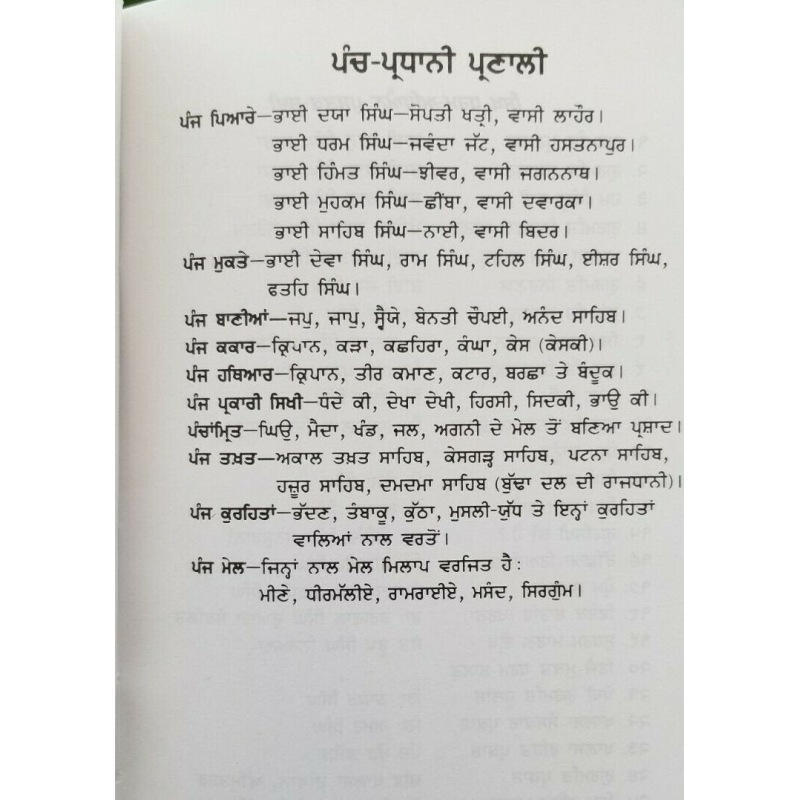 ਪੰਚ-ਪ੍ਰਧਾਨੀ ਪ੍ਰਣਾਲੀ
ਪੰਜ ਪਿਆਰੇ—ਭਾਈ ਦਯਾ ਸਿੰਘ—ਸੋਪਤੀ ਖਤ੍ਰੀ, ਵਾਸੀ ਲਾਹੌਰ।
ਭਾਈ ਧਰਮ ਸਿੰਘ—ਜਵੰਦਾ ਜੱਟ, ਵਾਸੀ ਹਸਤਨਾਪੁਰ।
ਭਾਈ ਹਿੰਮਤ ਸਿੰਘ—ਝੀਵਰ, ਵਾਸੀ ਜਗਨਨਾਥ।
ਭਾਈ ਮੁਹਕਮ ਸਿੰਘ—ਛੀਂਬਾ, ਵਾਸੀ ਦਵਾਰਕਾ।
ਭਾਈ ਸਾਹਿਬ ਸਿੰਘ—ਨਾਈ, ਵਾਸੀ ਬਿਦਰ।
ਪੰਜ ਮੁਕਤੇ—ਭਾਈ ਦੇਵਾ ਸਿੰਘ, ਰਾਮ ਸਿੰਘ, ਟਹਿਲ ਸਿੰਘ, ਈਸ਼ਰ ਸਿੰਘ,
ਫਤਹਿ ਸਿੰਘ।
ਪੰਜ ਬਾਣੀਆਂ—ਜਪੁ, ਜਾਪੁ, ਸ੍ਵੈਯੇ, ਬੇਨਤੀ ਚੌਪਈ, ਅਨੰਦ ਸਾਹਿਬ।
ਪੰਜ ਕਕਾਰ—ਕ੍ਰਿਪਾਨ, ਕੜਾ, ਕਛਹਿਰਾ, ਕੰਘਾ, ਕੇਸ (ਕੇਸਕੀ)।
ਪੰਜ ਹਥਿਆਰ—ਕ੍ਰਿਪਾਨ, ਤੀਰ ਕਮਾਣ, ਕਟਾਰ, ਬਰਛਾ ਤੇ ਬੰਦੂਕ।
ਪੰਜ ਪ੍ਰਕਾਰੀ ਸਿਖੀ—ਧੰਦੇ ਕੀ, ਦੇਖਾ ਦੇਖੀ, ਹਿਰਸੀ, ਸਿਦਕੀ, ਭਾਉ ਕੀ।
ਪੰਚਾਂਮ੍ਰਿਤ—ਘਿਉ, ਮੈਦਾ, ਖੰਡ, ਜਲ, ਅਗਨੀ ਦੇ ਮੇਲ ਤੋਂ ਬਣਿਆ ਪ੍ਰਸ਼ਾਦ।
ਪੰਜ ਤਖ਼ਤ—ਅਕਾਲ ਤਖ਼ਤ ਸਾਹਿਬ, ਕੇਸਗੜ੍ਹ ਸਾਹਿਬ, ਪਟਨਾ ਸਾਹਿਬ,
ਹਜ਼ੂਰ ਸਾਹਿਬ, ਦਮਦਮਾ ਸਾਹਿਬ (ਬੁੱਢਾ ਦਲ ਦੀ ਰਾਜਧਾਨੀ)।
ਪੰਜ ਕੁਰਹਿਤਾਂ—ਭੱਦਣ, ਤੰਬਾਕੂ, ਕੁੱਠਾ, ਮੁਸਲੀ-ਯੁੱਧ ਤੇ ਇਨ੍ਹਾਂ ਕੁਰਹਿਤਾਂ
ਵਾਲਿਆਂ ਨਾਲ ਵਰਤੋਂ।
ਪੰਜ ਮੇਲ—ਜਿਨ੍ਹਾਂ ਨਾਲ ਮੇਲ ਮਿਲਾਪ ਵਰਜਿਤ ਹੈ :
ਮੀਣੇ, ਧੀਰਮੱਲੀਏ, ਰਾਮਰਾਈਏ, ਮਸੰਦ, ਸਿਰਗੁੰਮ।